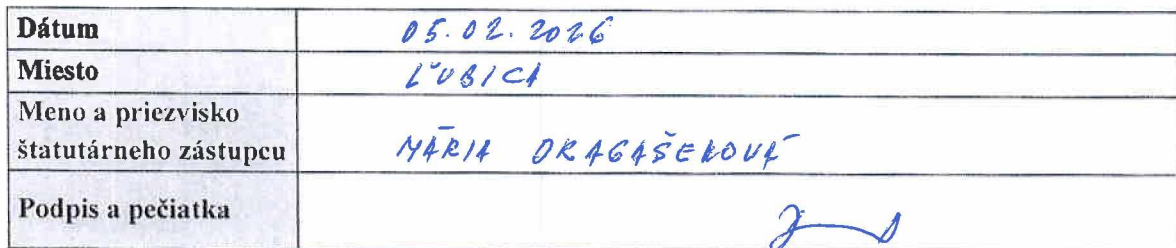 Dátum 05.02.2026
Miesto ĽUBICA
Meno a priezvisko
štatutárneho zástupcu MÁRIA DRAGAŠEKOVÁ
Podpis a pečiatka